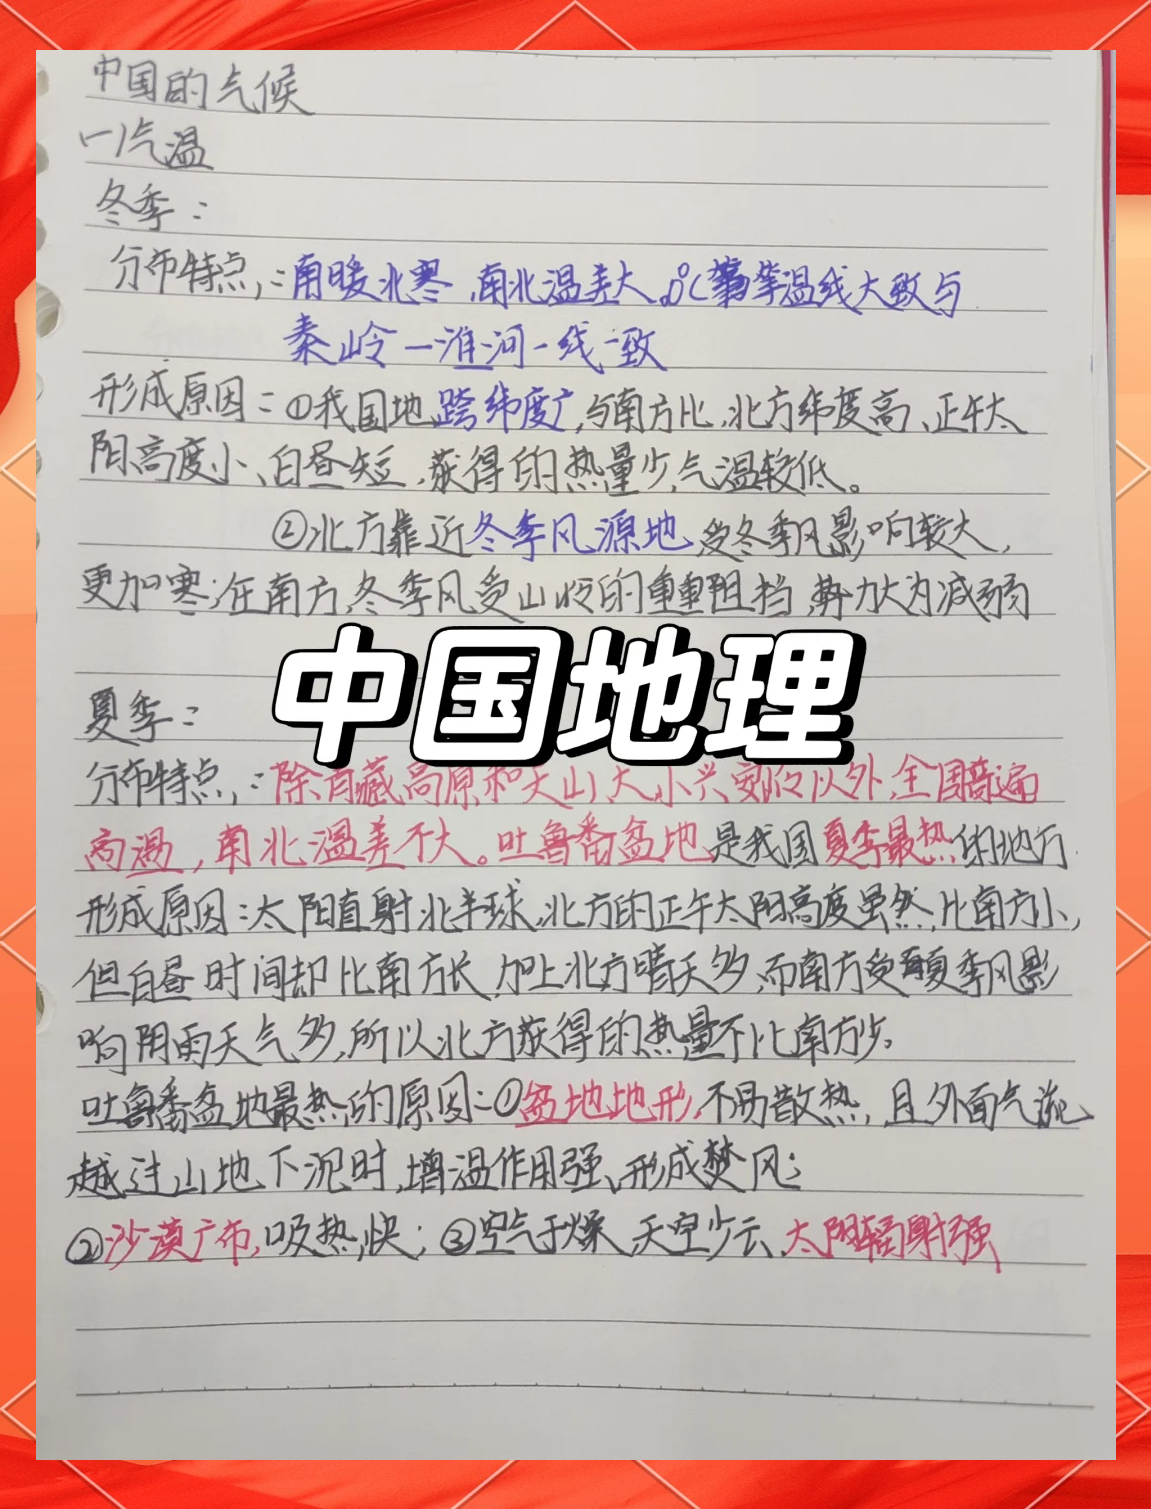 中国的气候
(一)气温
冬季：
分布特点：南暖北寒，南北温差大。0℃等温线大致与
秦岭一淮河一线一致
形成原因：①我国地跨纬度广，与南方比，北方纬度高、正午太
阳高度小、白昼短，获得的热量少，气温较低。
②北方靠近冬季风源地，受冬季风影响较大，
更加寒；在南方，冬季风受山岭的重重阻挡，势力大为减弱
中国地理
夏季：
分布特点：除青藏高原和天山、大小兴安岭以外，全国普遍
高温，南北温差不大。吐鲁番盆地是我国夏季最热的地方
形成原因：太阳直射北半球，北方的正午太阳高度虽然比南方小，
但白昼时间却比南方长，加上北方晴天多，而南方受夏季风影
响阴雨天气多，所以北方获得的热量不比南方少。
吐鲁番盆地最热的原因：①盆地地形，不易散热，且外面气流
越过山地下沉时，增温作用强，形成焚风；
②沙漠广布，吸热快；③空气干燥，天空少云、太阳辐射强